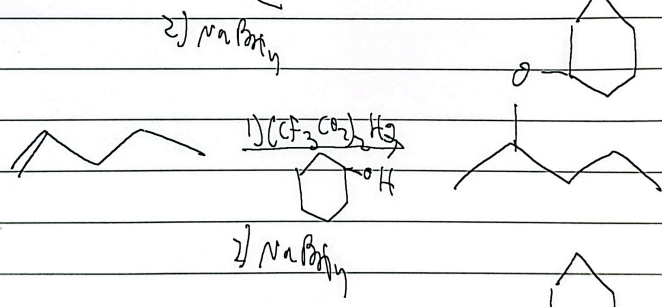 2.) NaBH4
O
1) (CF3CO2)2 Hg
OH
2) NaBH4